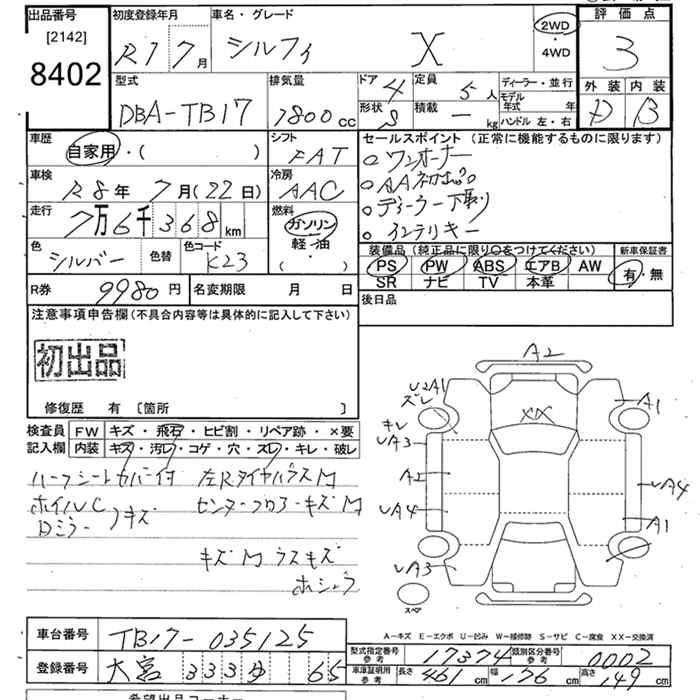 出品番号
[2142]
8402
初度登録年月
R1 7月
車名・グレード
シルフィ X
2WD
・4WD
評価点
3
外装 内装
D B
型式
DBA-TB17
排気量
1800cc
ドア 4
形状 S
定員 5人
積載 ー kg
ディーラー・並行
モデル年式 年
ハンドル 左・右
車歴
自家用・( )
シフト
FAT
車検
R8年 7月(22日)
冷房
AAC
走行
7万6千368km
燃料
ガソリン
・軽・油
・( )
色
シルバー
色替
色コード
K23
R券 9980円
名変期限 月 日
セールスポイント(正常に機能するものに限ります)
○ワンオーナー
○AA初出品
○ディーラー下取り
○インテリキー
装備品(純正品に限り○をつけてください)
PS PW ABS エアB AW
SR ナビ TV 本革
新車保証書
有・無
後日品
注意事項申告欄(不具合内容等は具体的に記入して下さい)
初出品
修復歴 有 〔箇所 〕
検査員記入欄
FW キズ・飛石・ヒビ割・リペア跡・×要
内装 キズ・汚レ・コゲ・穴・スレ・キレ・破レ
ハーフシートカバー付 左Rタイヤハウス M
ホイルC キズ センターフロアーキズ M
Dミラー
キズ M ラスキズ
ホシュウ
A2
U2A1
ズレ
キレ
UA3
A2
UA4
UA3
XX
A1
UA4
A1
スペア
A-キズ E-エクボ U-凹み W-補修跡 S-サビ C-腐食 XX-交換済
車台番号 TB17-035125
登録番号 大宮 333 ゆ 65
型式指定番号 参考 17374
類別区分番号 参考 0002
車庫証明用 参考 長さ 461cm 幅 176cm 高さ 149cm
希望出品コーナー